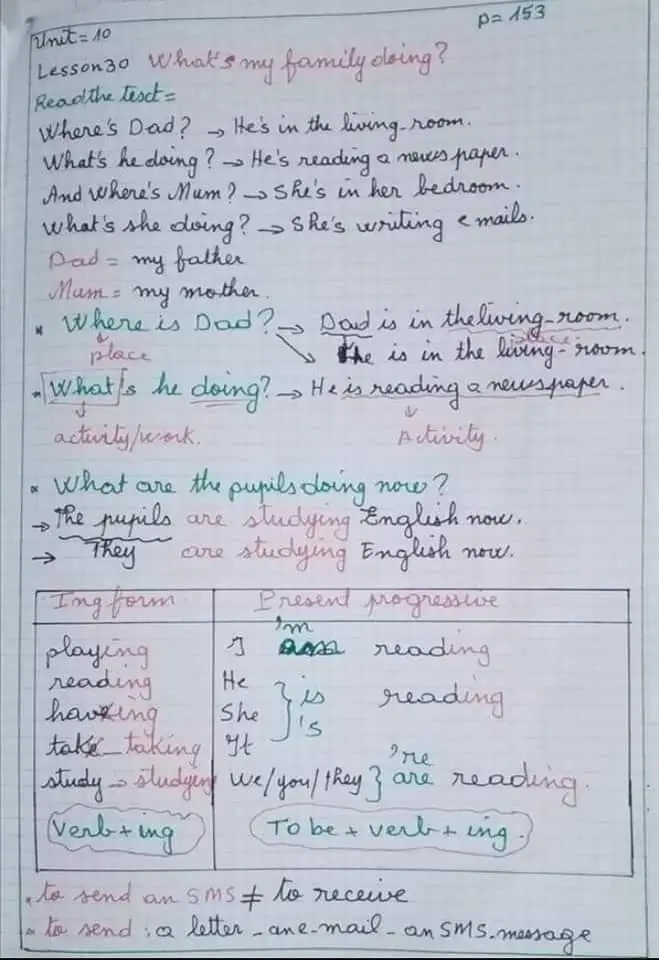 p=153
Unit=10
Lesson 30 What's my family doing?
Read the text=
Where's Dad? → He's in the living-room.
What's he doing? → He's reading a newspaper.
And Where's Mum? → She's in her bedroom.
What's she doing? → She's writing emails.
Dad = my father
Mum = my mother.
* Where is Dad? → Dad is in the living-room.
place place
He is in the living-room.
* What's he doing? → He is reading a newspaper.
activity/work. Activity.
* What are the pupils doing now?
→ The pupils are studying English now.
→ They are studying English now.
Ing form Present progressive
'm
playing I am reading
reading He
having She is reading
's
take - taking It
're
study → studying We/you/they are reading.
Verb + ing To be + verb + ing.
* to send an SMS ≠ to receive
* to send : a letter - an e-mail - an SMS. message